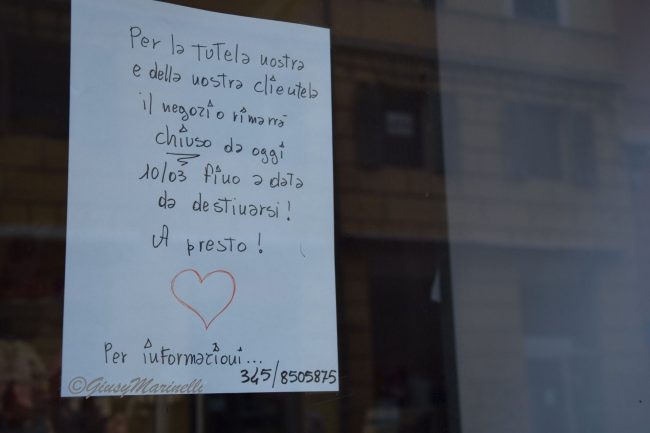 Per la tutela nostra
e della nostra clientela
il negozio rimarrà
chiuso da oggi
10/03 fino a data
da destinarsi!
A presto!
Per informazioni...
345/8505875
©GiusyMarinelli